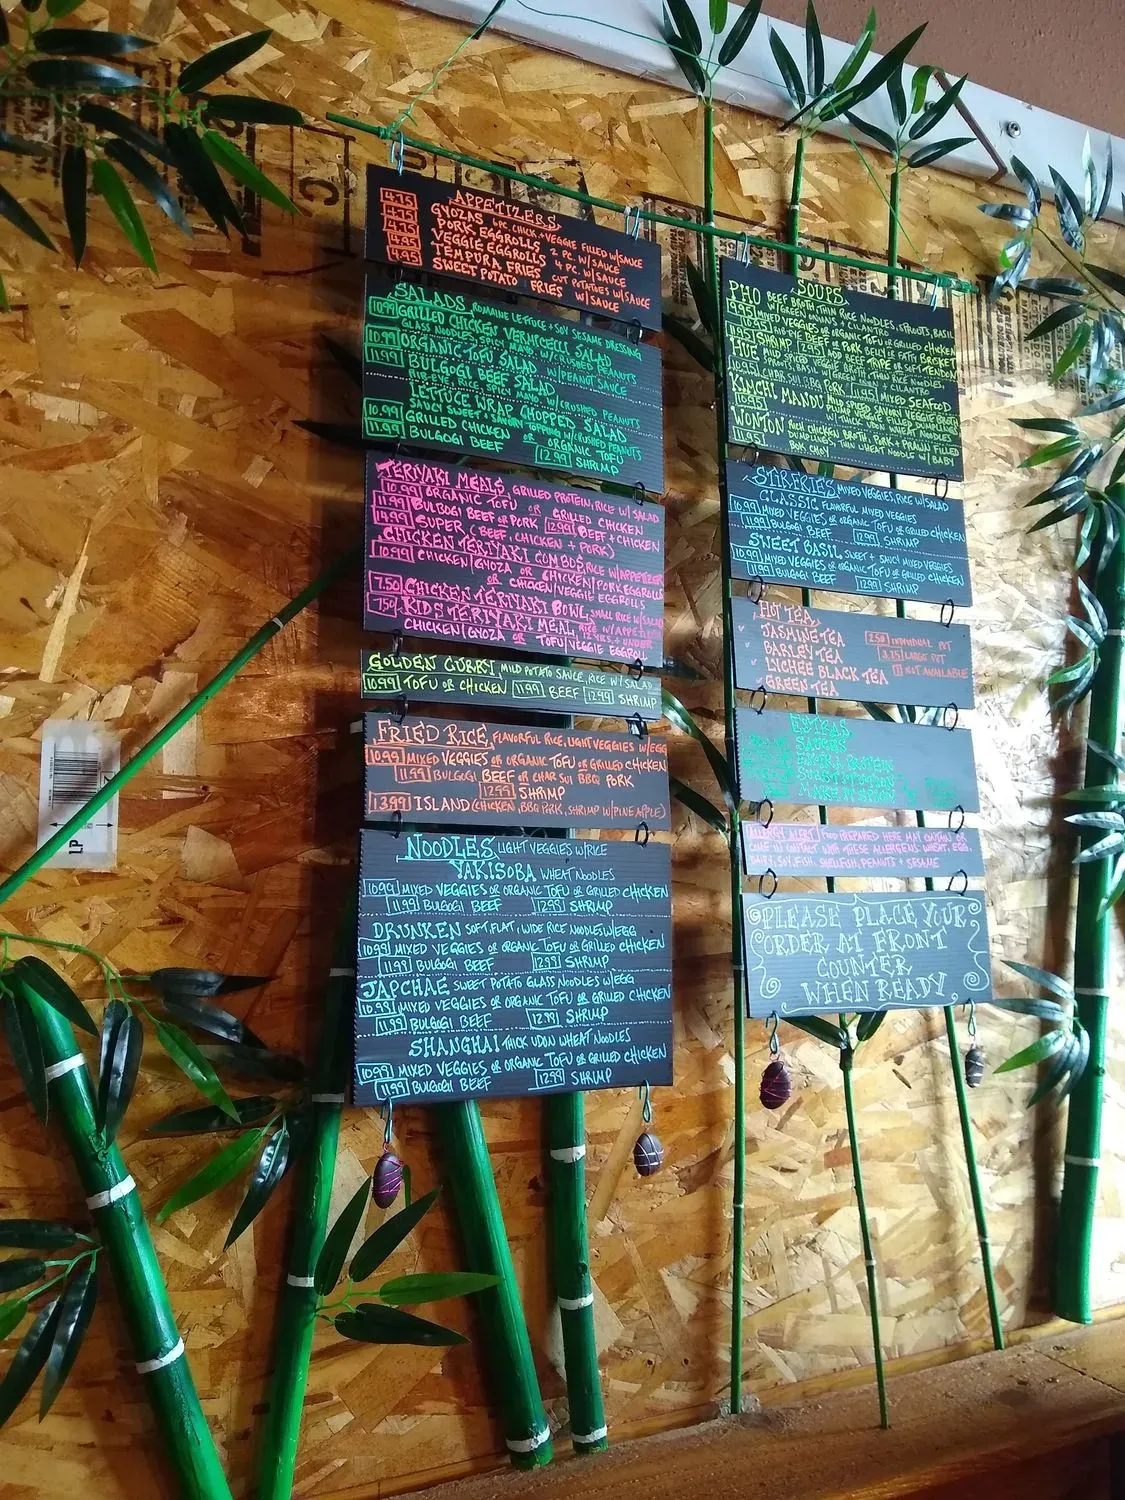 APPETIZERS
4.75 GYOZAS 4PC. CHICK.+VEGGIE FILLED W/SAUCE
4.75 PORK EGGROLLS 2 PC. W/SAUCE
4.75 VEGGIE EGGROLLS 4 PC. W/SAUCE
4.95 TEMPURA FRIES CUT POTATOES W/SAUCE
4.95 SWEET POTATO FRIES W/SAUCE
SALADS ROMAINE LETTUCE + SOY SESAME DRESSING
10.99 GRILLED CHICKEN VERMICELLI SALAD
GLASS NOODLES, W/CRUSHED PEANUTS
10.99 ORGANIC TOFU SALAD W/PEANUT SAUCE
11.99 BULGOGI BEEF SALAD
RICE MAYO W/CRUSHED PEANUTS
LETTUCE WRAP CHOPPED SALAD
SAUCY SWEET + SAVORY TOPPING W/CRUSHED PEANUTS
10.99 GRILLED CHICKEN OR ORGANIC TOFU
11.99 BULGOGI BEEF 12.99 SHRIMP
TERIYAKI MEALS GRILLED PROTEIN, RICE W/SALAD
10.99 ORGANIC TOFU OR GRILLED CHICKEN
11.99 BULGOGI BEEF OR PORK 12.99 BEEF + CHICKEN
14.99 SUPER (BEEF, CHICKEN + PORK)
CHICKEN TERIYAKI COMBOS RICE W/APPETIZER
10.99 CHICKEN/GYOZA OR CHICKEN/PORK EGGROLLS
OR CHICKEN/VEGGIE EGGROLLS
7.50 CHICKEN TERIYAKI BOWL SMALL RICE W/SALAD
7.50 KIDS TERIYAKI MEAL RICE W/APPETIZER 12 YRS. + UNDER
CHICKEN/GYOZA OR TOFU/VEGGIE EGGROLL
GOLDEN CURRY MILD POTATO SAUCE, RICE W/SALAD
10.99 TOFU OR CHICKEN 11.99 BEEF 12.99 SHRIMP
FRIED RICE FLAVORFUL RICE, LIGHT VEGGIES W/EGG
10.99 MIXED VEGGIES OR ORGANIC TOFU OR GRILLED CHICKEN
11.99 BULGOGI BEEF OR CHAR SUI BBQ PORK
12.99 SHRIMP
13.99 ISLAND (CHICKEN, BBQ PORK, SHRIMP W/PINEAPPLE)
NOODLES LIGHT VEGGIES W/RICE
YAKISOBA WHEAT NOODLES
10.99 MIXED VEGGIES OR ORGANIC TOFU OR GRILLED CHICKEN
11.99 BULGOGI BEEF 12.99 SHRIMP
DRUNKEN SOFT FLAT, WIDE RICE NOODLES W/EGG
10.99 MIXED VEGGIES OR ORGANIC TOFU OR GRILLED CHICKEN
11.99 BULGOGI BEEF 12.99 SHRIMP
JAPCHAE SWEET POTATO GLASS NOODLES W/EGG
10.99 MIXED VEGGIES OR ORGANIC TOFU OR GRILLED CHICKEN
11.99 BULGOGI BEEF 12.99 SHRIMP
SHANGHAI THICK UDON WHEAT NOODLES
10.99 MIXED VEGGIES OR ORGANIC TOFU OR GRILLED CHICKEN
11.99 BULGOGI BEEF 12.99 SHRIMP
SOUPS
PHO BEEF BROTH, THIN RICE NOODLES, SPROUTS, BASIL
W/GREEN ONION + CILANTRO
MIXED VEGGIES OR ORGANIC TOFU OR GRILLED CHICKEN
10.95 RARE BEEF OR PORK BELLY OR FATTY BRISKET
11.95 SHRIMP ADD BEEF TRIPE OR SOFT TENDON
HUE RICE NOODLES,
CHAR SUI BBQ PORK 11.95 MIXED SEAFOOD
KIMCHI MANDU
10.95 NOODLES
WONTON RICH CHICKEN BROTH, PORK + PRAWN FILLED
11.95 DUMPLINGS + THIN WHEAT NOODLE W/BABY
BOK CHOY
STIRFRIES MIXED VEGGIES, RICE W/SALAD
CLASSIC FLAVORFUL MIXED VEGGIES
10.99 MIXED VEGGIES OR ORGANIC TOFU OR GRILLED CHICKEN
11.99 BULGOGI BEEF 12.99 SHRIMP
SWEET BASIL SWEET + SPICY MIXED VEGGIES
10.99 MIXED VEGGIES OR ORGANIC TOFU OR GRILLED CHICKEN
11.99 BULGOGI BEEF 12.99 SHRIMP
HOT TEA
JASMINE TEA 2.50 INDIVIDUAL POT
BARLEY TEA 3.75 LARGE POT
LYCHEE BLACK TEA NOT AVAILABLE
GREEN TEA
EXTRAS
SAUCES
PROTEIN
SUBSTITUTION
MAKE IT SPICY
ALLERGY ALERT! FOOD PREPARED HERE MAY CONTAIN OR
COME IN CONTACT WITH THESE ALLERGENS: WHEAT, EGG,
DAIRY, SOY, FISH, SHELLFISH, PEANUTS + SESAME
PLEASE PLACE YOUR
ORDER AT FRONT
COUNTER
WHEN READY
LP